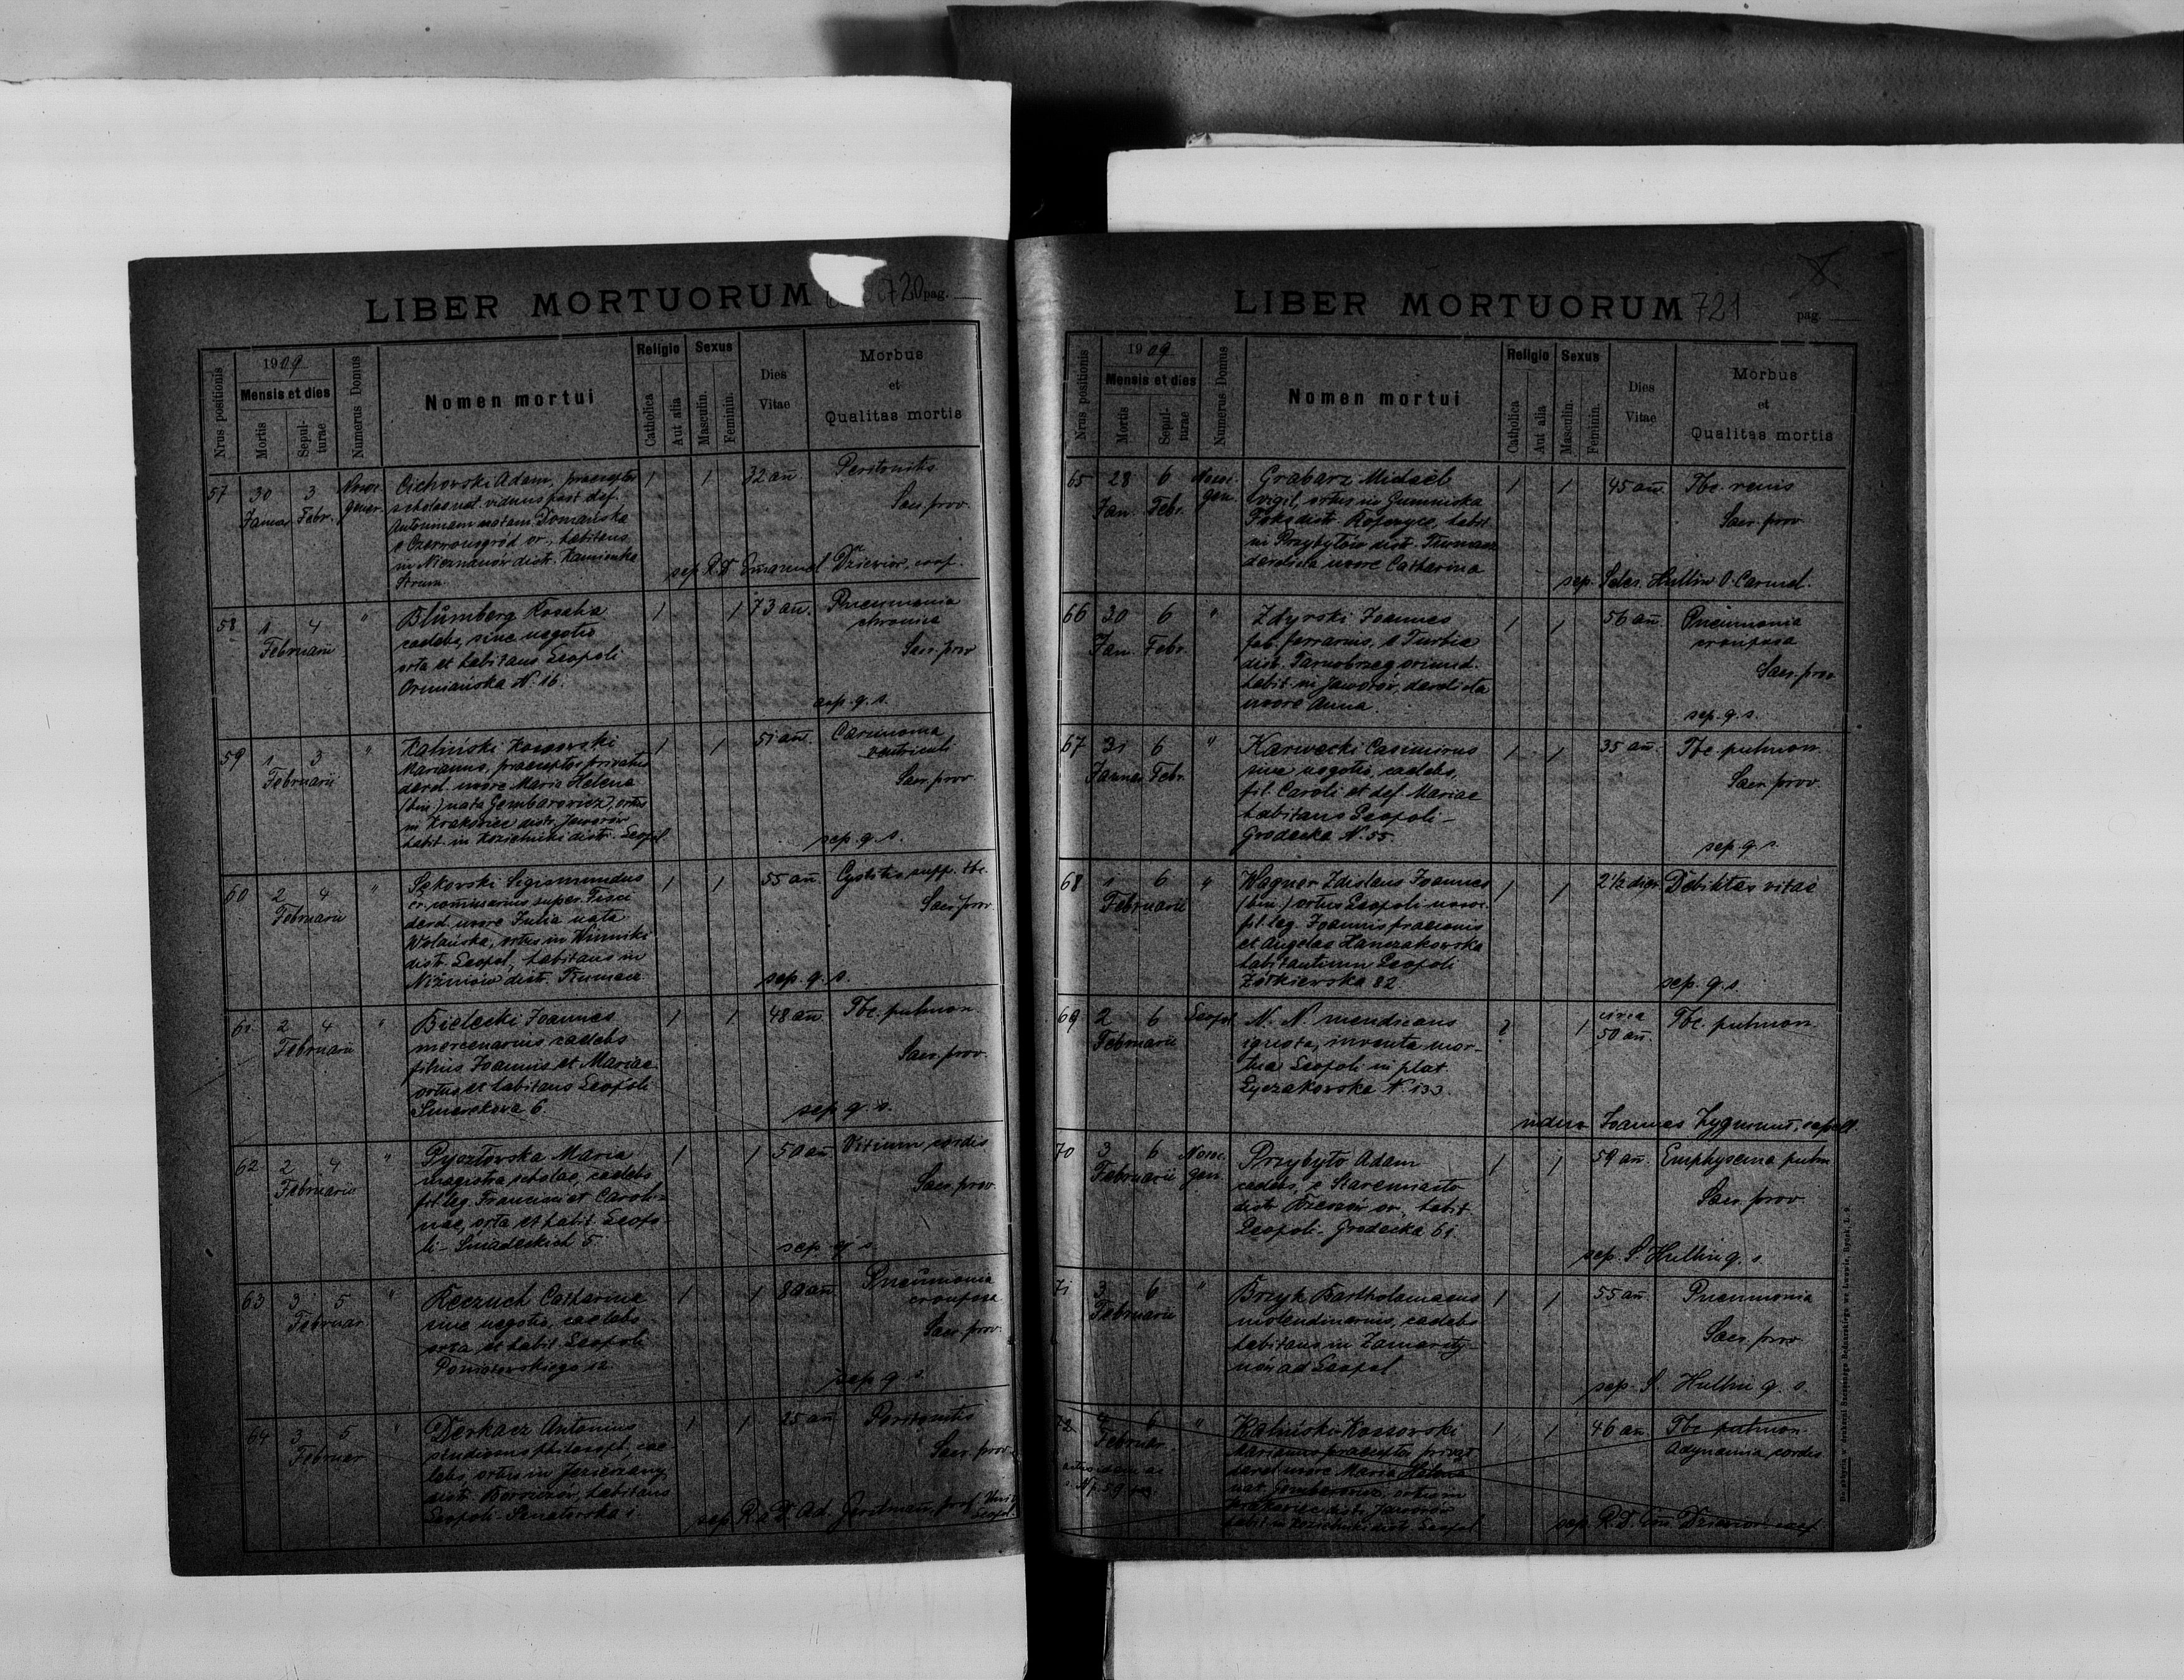 LIBER MORTUORUM 720 pag.
1909
Nrus positionis
Mensis et dies
Mortis
Sepulturae
Numerus Domus
Nomen mortui
Religio
Catholica
Aut alia
Sexus
Masculin.
Feminin.
Dies Vitae
Morbus
et
Qualitas mortis
57 30 Januar 3 Febr. Nosoc. gener. Cichovski Adam, praeceptor 1 1 32 an. Peritonitis
viduus post def. Sacr. prov.
Antoniam natam Domańska
e Czerwonogród or., habitans
in Nieznanów distr. Kamionka
Strum.
sep. R. D. Emanuel Dziewior, coop.
58 1 4 Februarii " Blumberg Rosalia 1 1 73 an. Pneumonia
caelebs, sine negotio chronica
orta et habitans Leopoli Sacr. prov
Ormiańska N. 16.
sep. q. s.
59 1 3 Februarii " Kaliński Kossowski 1 1 51 an. Carcinoma
Marianus, praeceptor privatus ventriculi
derel. uxore Maria Helena Sacr. prov.
(bin.) nata Gembarowicz, ortus
in Krakowiec distr. Jaworów
habit. in Kozielniki distr. Leopol
sep. q. s.
60 2 4 Februarii " Sękowski Sigismundus 1 1 55 an. Cystitis supp. tbc.
cr. commisarius super. Fisci Sacr. prov.
derel. uxore Julia nata
Wolańska, ortus in Winniki
distr. Leopol., habitans in
Niżniów distr. Tłumacz.
sep. q. s.
61 2 4 Februarii " Bielecki Joannes 1 1 48 an. Tbc. pulmon.
mercenarius caelebs Sacr. prov.
filius Joannis et Mariae
ortus et habitans Leopoli
6.
sep. q. s.
62 2 4 Februarii " Maria 1 1 50 an. Vitium cordis
magistra scholae, caelebs Sacr. prov.
fil. leg. Francisci et Caroli-
nae, orta et habit. Leopo-
li - Śniadeckich 5.
sep. q. s.
63 3 5 Februar. " Reczuch Catharina 1 1 80 an. Pneumonia
sine negotio, caelebs crouposa
orta et habit. Leopoli Sacr. prov.
Poniatowskiego 12
sep. q. s.
64 3 5 Februar " Derkacz Antonius 1 1 25 an. Peritonitis
studiosus philosoph., cae- Sacr. prov.
lebs, ortus in Jezierzany
distr. Borszczów, habitans
Leopoli - Senatorska 1
sep. R. D. Ad. Gerstmann, prof. Univ. Leopol.
LIBER MORTUORUM 721 pag
1909
Nrus positionis
Mensis et dies
Mortis
Sepulturae
Numerus Domus
Nomen mortui
Religio
Catholica
Aut alia
Sexus
Masculin.
Feminin.
Dies Vitae
Morbus
et
Qualitas mortis
65 28 Jan. 6 Febr. Nosoc. gen. Grabarz Michaël 1 1 45 an. Tbc. renis
vigil, ortus in Gumniska Sacr. prov
Foks distr. Ropczyce, habit.
in Przybyłów distr. Tłumacz
derelicta uxore Catharina
sep. Hullin O. Carmel.
66 30 Jan. 6 Febr. " Zdyrski Joannes 1 1 56 an. Pneumonia
fab. ferrarius, e Turbia crouposa
distr. Tarnobrzeg oriund. Sacr. prov
habit. in Jaworów, derelicta
uxore Anna.
sep. q. s.
67 31 Januar 6 Febr. " Karwecki Casimirus 1 1 35 an. Tbc. pulmon.
sine negotio, caelebs, Sacr. prov.
fil. Caroli et def. Mariae
habitans Leopoli -
Grodecka N. 55.
sep. q. s.
68 1 6 Februarii " Wagner Zdislaus Joannes 1 1 2 1/2 dier. Debilitas vitae
(bin.) ortus Leopoli nosoc.
fil. leg. Joannis praeconis
et Angelae Hanczakowska
habitantium Leopoli
Żółkiewska 82.
sep. q. s.
69 2 6 Februarii Leopol N. N. mendicans ? 1 circa 50 an. Tbc. pulmon.
ignota, inventa mor-
tua Leopoli in plat.
Łyczakowska N. 133.
Joannes Zygmunt, capell.
70 3 6 Februarii Nosoc. gen. Przybyło Adam 1 1 59 an. Emphysema pulm.
caelebs, e Staremiasto Sacr. prov.
distr. Rzeszów or., habit.
Leopoli - Grodecka 61.
sep. S. Hullin q. s.
71 3 6 Februarii " Brzyk Bartholomaeus 1 1 55 an. Pneumonia
molendinarius, caelebs Sacr. prov.
habitans in Zamarsty-
nów ad Leopol.
sep. S. Hullin q. s.
72 4 6 Februar " Kaliński-Kossowski 1 1 46 an. Tbc pulmon.
Marianus praeceptor privat. Adynamia cordis
derel. uxore Maria Helena
nat. Gembarowicz, ortus in
Krakowiec distr. Jaworów
habit. in Kozielniki distr. Leopol
sep. R. D. Em. Dziewior coop.